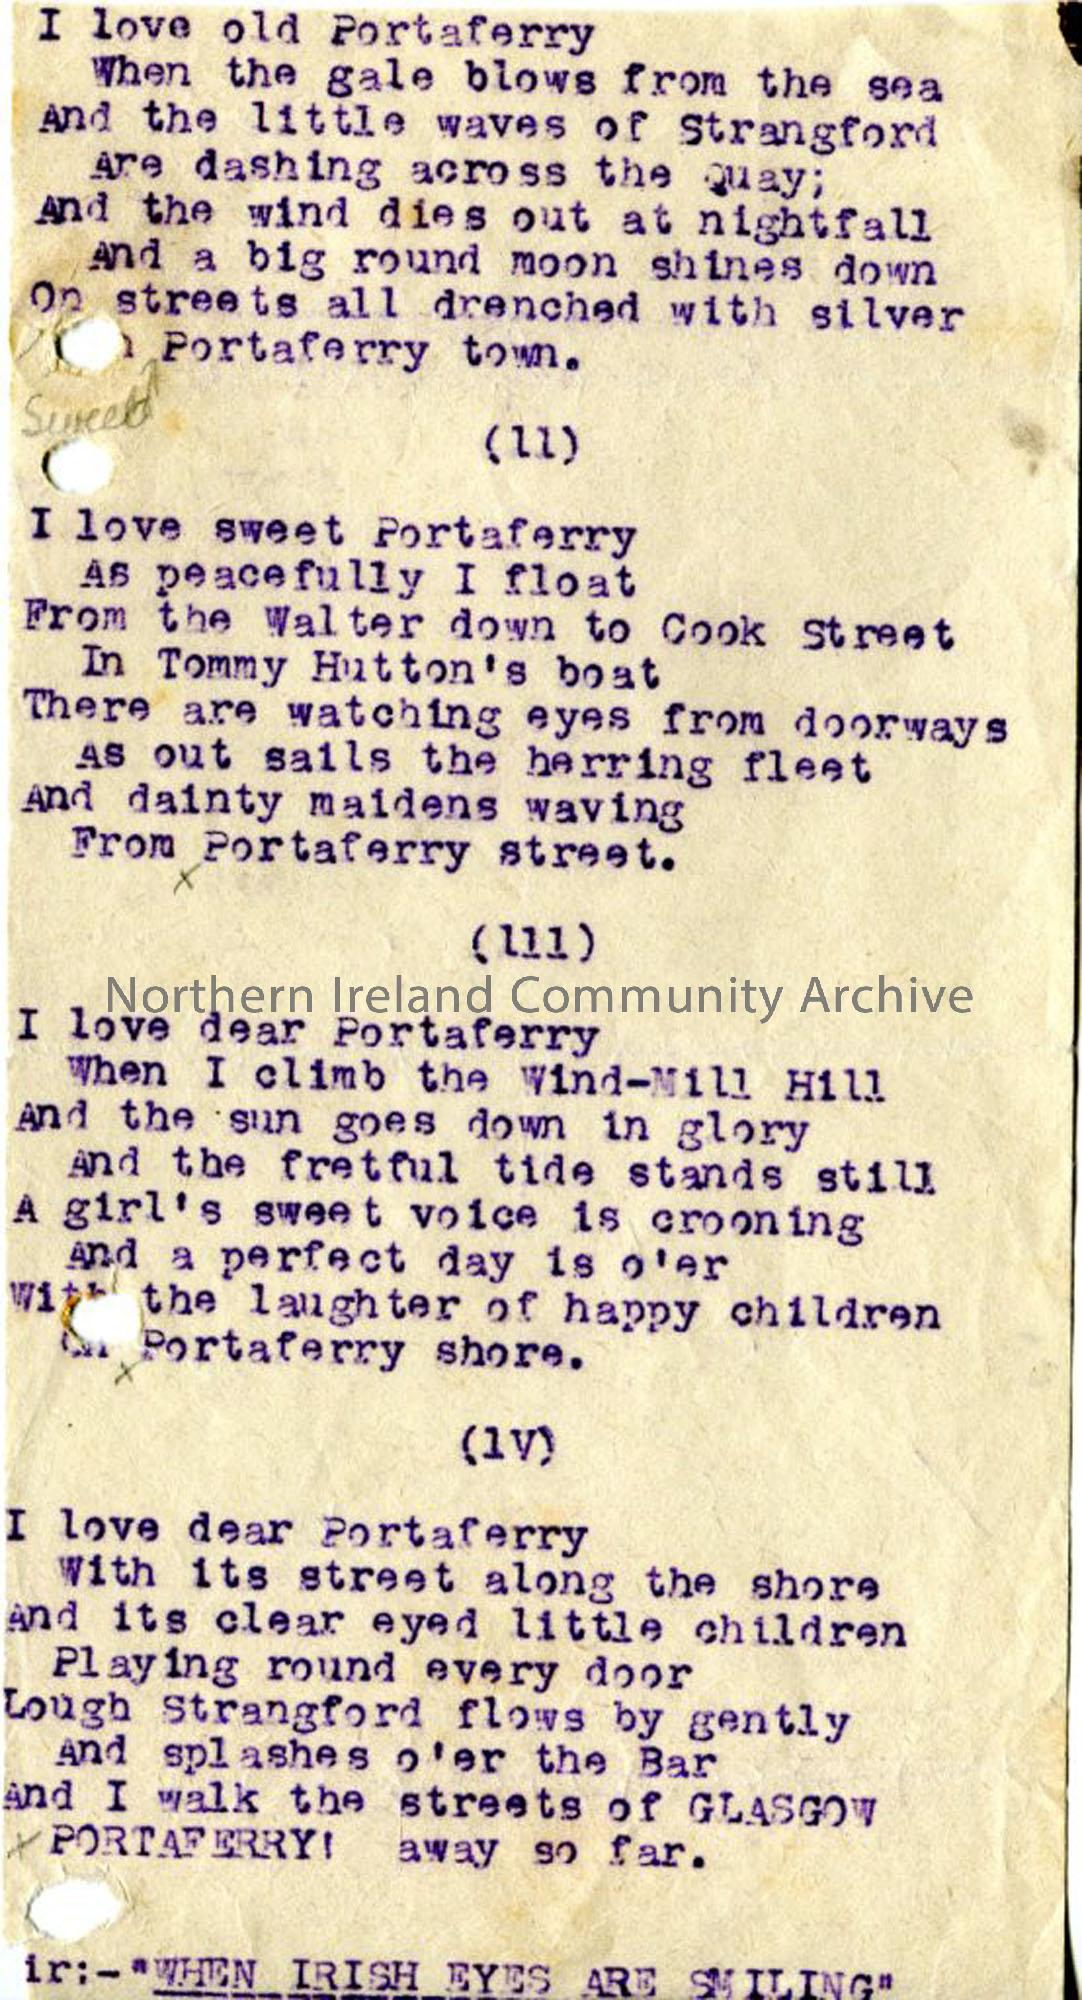 I love old Portaferry
When the gale blows from the sea
And the little waves of Strangford
Are dashing across the Quay;
And the wind dies out at nightfall
And a big round moon shines down
On streets all drenched with silver
Portaferry town.
Sweet
(ll)
I love sweet Portaferry
As peacefully I float
From the Walter down to Cook Street
In Tommy Hutton's boat
There are watching eyes from doorways
As out sails the herring fleet
And dainty maidens waving
From Portaferry street.
x
(lll)
Northern Ireland Community Archive
I love dear Portaferry
When I climb the Wind-Mill Hill
And the sun goes down in glory
And the fretful tide stands still
A girl's sweet voice is crooning
And a perfect day is o'er
With the laughter of happy children
On Portaferry shore.
x
(lV)
I love dear Portaferry
With its street along the shore
And its clear eyed little children
Playing round every door
Lough Strangford flows by gently
And splashes o'er the Bar
And I walk the streets of GLASGOW
x PORTAFERRY! away so far.
ir:-"WHEN IRISH EYES ARE SMILING"